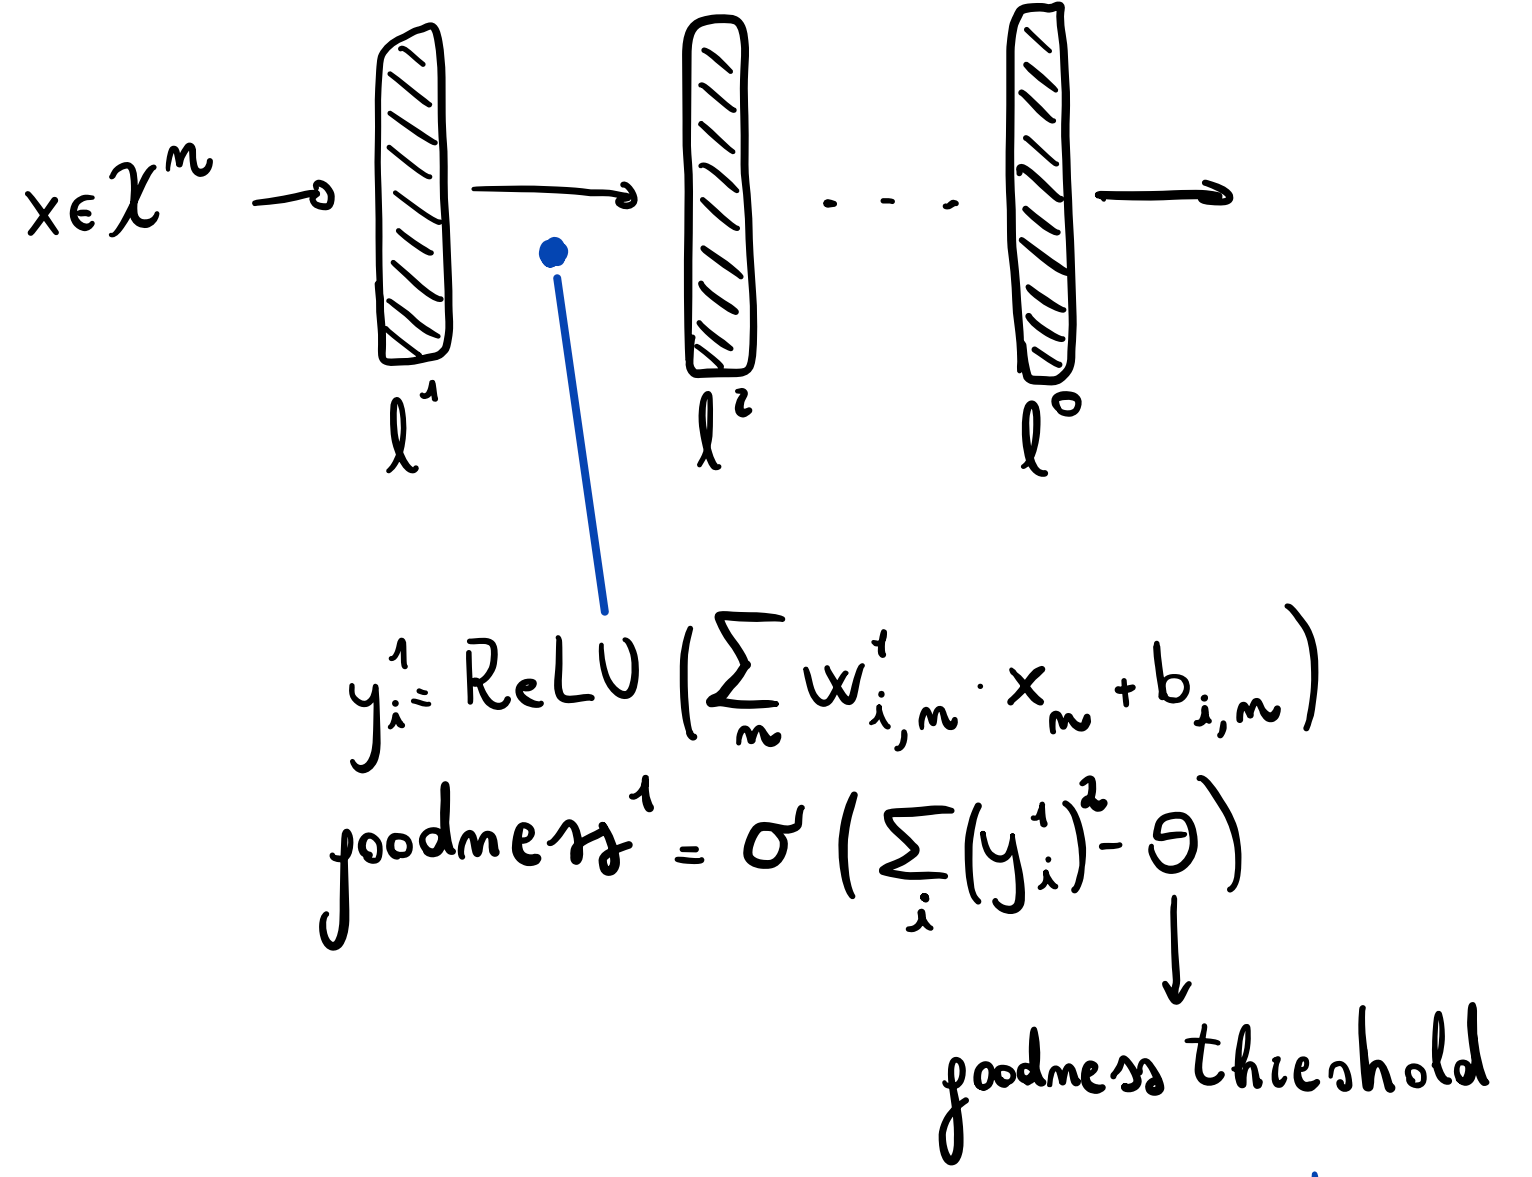 x ∈ χⁿ
l¹ l² l⁰
y¹ᵢ = ReLU (∑ₙ w¹ᵢ,ₙ · xₙ + bᵢ,ₙ)
goodness¹ = σ (∑ᵢ (y¹ᵢ)² - θ)
goodness threshold